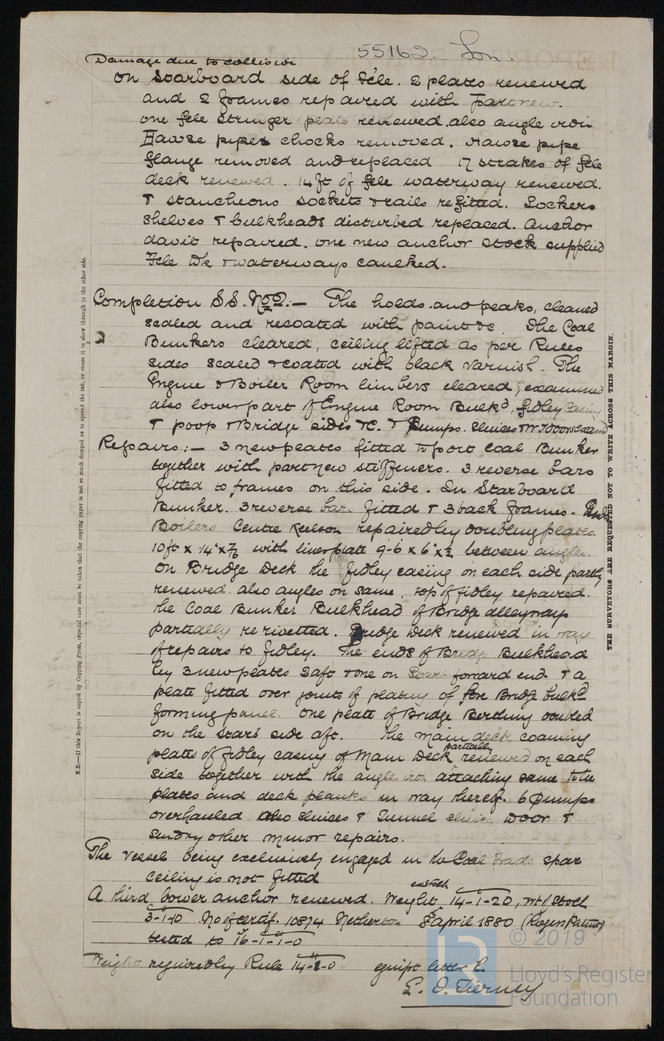 55162. Lon.
Damage due to collision
on Starboard side of Fcle. 2 plates renewed
and 2 frames repaired with part new.
one fcle Stringer plate renewed, also angle iron
Hawse pipes chocks removed. Hawse pipe
flange removed and replaced 17 strakes of fcle
deck renewed. 14 ft of fcle waterway renewed.
& stancheons sockets & rails refitted. Lockers
shelves & bulkheads disturbed replaced. Anchor
davit repaired. one new anchor stock supplied
Fcle Dk & waterways caulked.
Completion S.S. No 2:— The holds and peaks, cleaned
scaled and recoated with paint &c. The Coal
Bunkers cleared, ceiling lifted as per Rules
sides scaled & coated with black varnish. The
Engine & Boiler Room limbers cleared & examined
also lower part of Engine Room Bulkd, fidley casing
& poop & Bridge sides &c. & Pumps. Sluices W.T. Doors
Repairs:— 3 new plates fitted to port Coal Bunker
together with part new stiffeners. 3 reverse bars
fitted to frames on this side. In Starboard
Bunker. 3 reverse bar fitted & 3 back frames.
Boilers Centre Keelson repaired by doubling plates
10ft x 14" x 7/ with liner plate 9-6 x 6" x ½ between angles.
On Bridge Deck the fidley casing on each side partly
renewed also angles on same, top of fidley repaired.
the Coal Bunker Bulkhead of Bridge alleyways
partially re rivetted. Bridge Deck renewed in way
of repairs to fidley. The ends of Bridge Bulkhead
by 3 new plates 2 aft & one on Starb forward end. & a
plate fitted over joints of plating of fore Bridge bulkd
forming panel. One plate of Bridge Berthing doubled
on the Starb side aft. The main deck coaming
plates of fidley casing of Main Deck partially renewed on each
side together with the angle iron attaching same to the
plates and deck planks in way thereof. 6 Pumps
overhauled also sluices & Tunnel sluice door &
sundry other minor repairs.
The vessel being exclusively engaged in the Coal Trade spar
ceiling is not fitted
A third bower anchor renewed. Weight ex stock 14-1-20, wt of Stock
3-1-10 No of certif. 10874 Netherton April 1880
tested to 16-1-1-0
Weight required by Rule 14-2-0 equipt letter
E. O. Tierney
THE SURVEYORS ARE REQUESTED NOT TO WRITE ACROSS THIS MARGIN.
N.B.—If this Report is copied by Copying Press, especial care must be taken that the copying paper is not so much damped as to spread the ink, or cause it to show through to the other side.
LR
© 2019
Lloyd's Register
Foundation